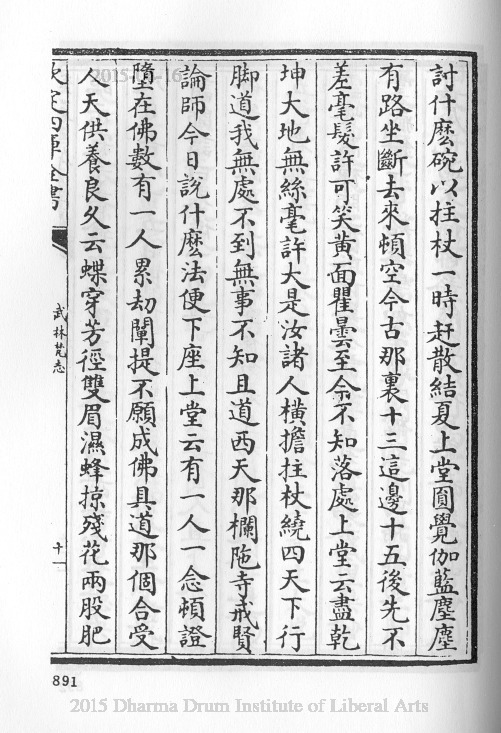 討什麽碗以拄杖一時赶散結夏上堂圓覺伽藍塵塵
有路坐斷去來頓空今古那裏十三這邊十五後先不
差毫髮許可笑黄面瞿曇至令不知落處上堂云盡乾
坤大地無絲毫許大是汝諸人横擔拄杖繞四天下行
脚道我無處不到無事不知且道西天那欄陁寺戒賢
論師今日説什麽法便下座上堂云有一人一念頓證
墮在佛數有一人累劫闡提不願成佛具道那個合受
人天供養良久云蝶穿芳徑雙眉濕蜂掠殘花兩股肥
武林梵志
十
891
2015 Dharma Drum Institute of Liberal Arts